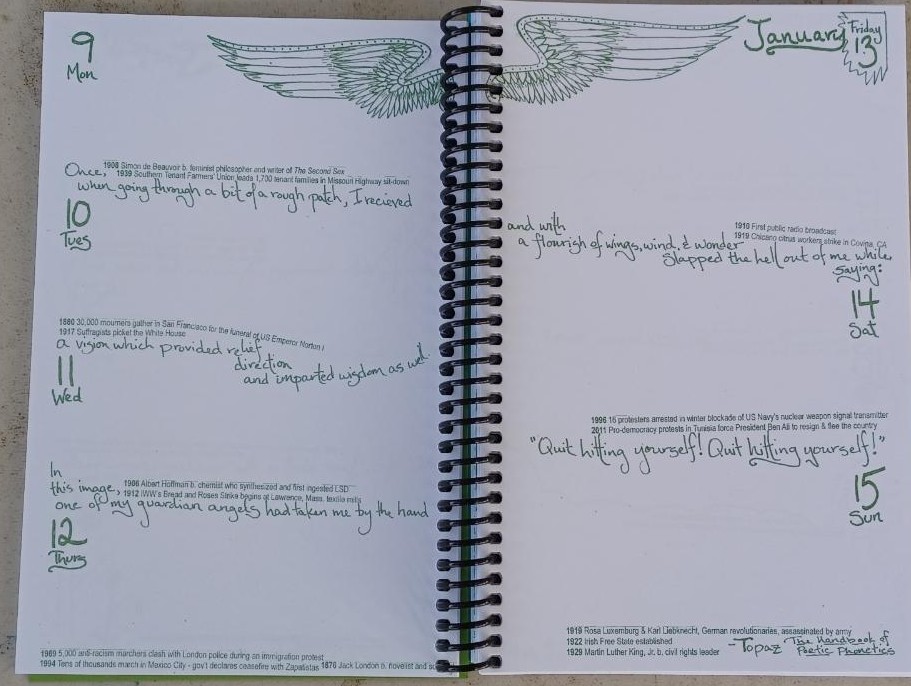 9
Mon
1908 Simon de Beauvoir b. feminist philosopher and writer of The Second Sex
Once, 1939 Southern Tenant Farmers' Union leads 1,700 tenant families in Missouri Highway sit-down
when going through a bit of a rough patch, I recieved
10
Tues
1880 30,000 mourners gather in San Francisco for the funeral of US Emperor Norton I
1917 Suffragists picket the White House
a vision which provided relief
direction
and imparted wisdom as well
11
Wed
In
this image, 1906 Albert Hoffman b. chemist who synthesized and first ingested LSD
1912 IWW's Bread and Roses Strike begins at Lawrence, Mass. textile mills
one of my guardian angels had taken me by the hand
12
Thurs
1969 5,000 anti-racism marchers clash with London police during an immigration protest
1994 Tens of thousands march in Mexico City - gov't declares ceasefire with Zapatistas 1876 Jack London b. novelist and
January Friday
13
and with
1910 First public radio broadcast
1919 Chicano citrus workers strike in Covina, CA
a flourish of wings, wind, & wonder
slapped the hell out of me while
saying:
14
Sat
1996 16 protesters arrested in winter blockade of US Navy's nuclear weapon signal transmitter
2011 Pro-democracy protests in Tunisia force President Ben Ali to resign & flee the country
"Quit hitting yourself! Quit hitting yourself!"
15
Sun
1919 Rosa Luxemburg & Karl Liebknecht, German revolutionaries, assassinated by army
1922 Irish Free State established
1929 Martin Luther King, Jr. b. civil rights leader
-Topaz The Handbook of
Poetic Phonetics